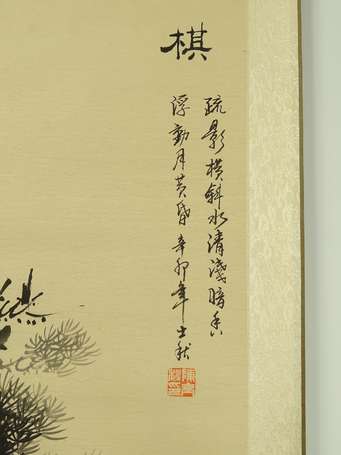 棋
疏影横斜水清淺暗香
浮動月黄昏辛卯年士秋